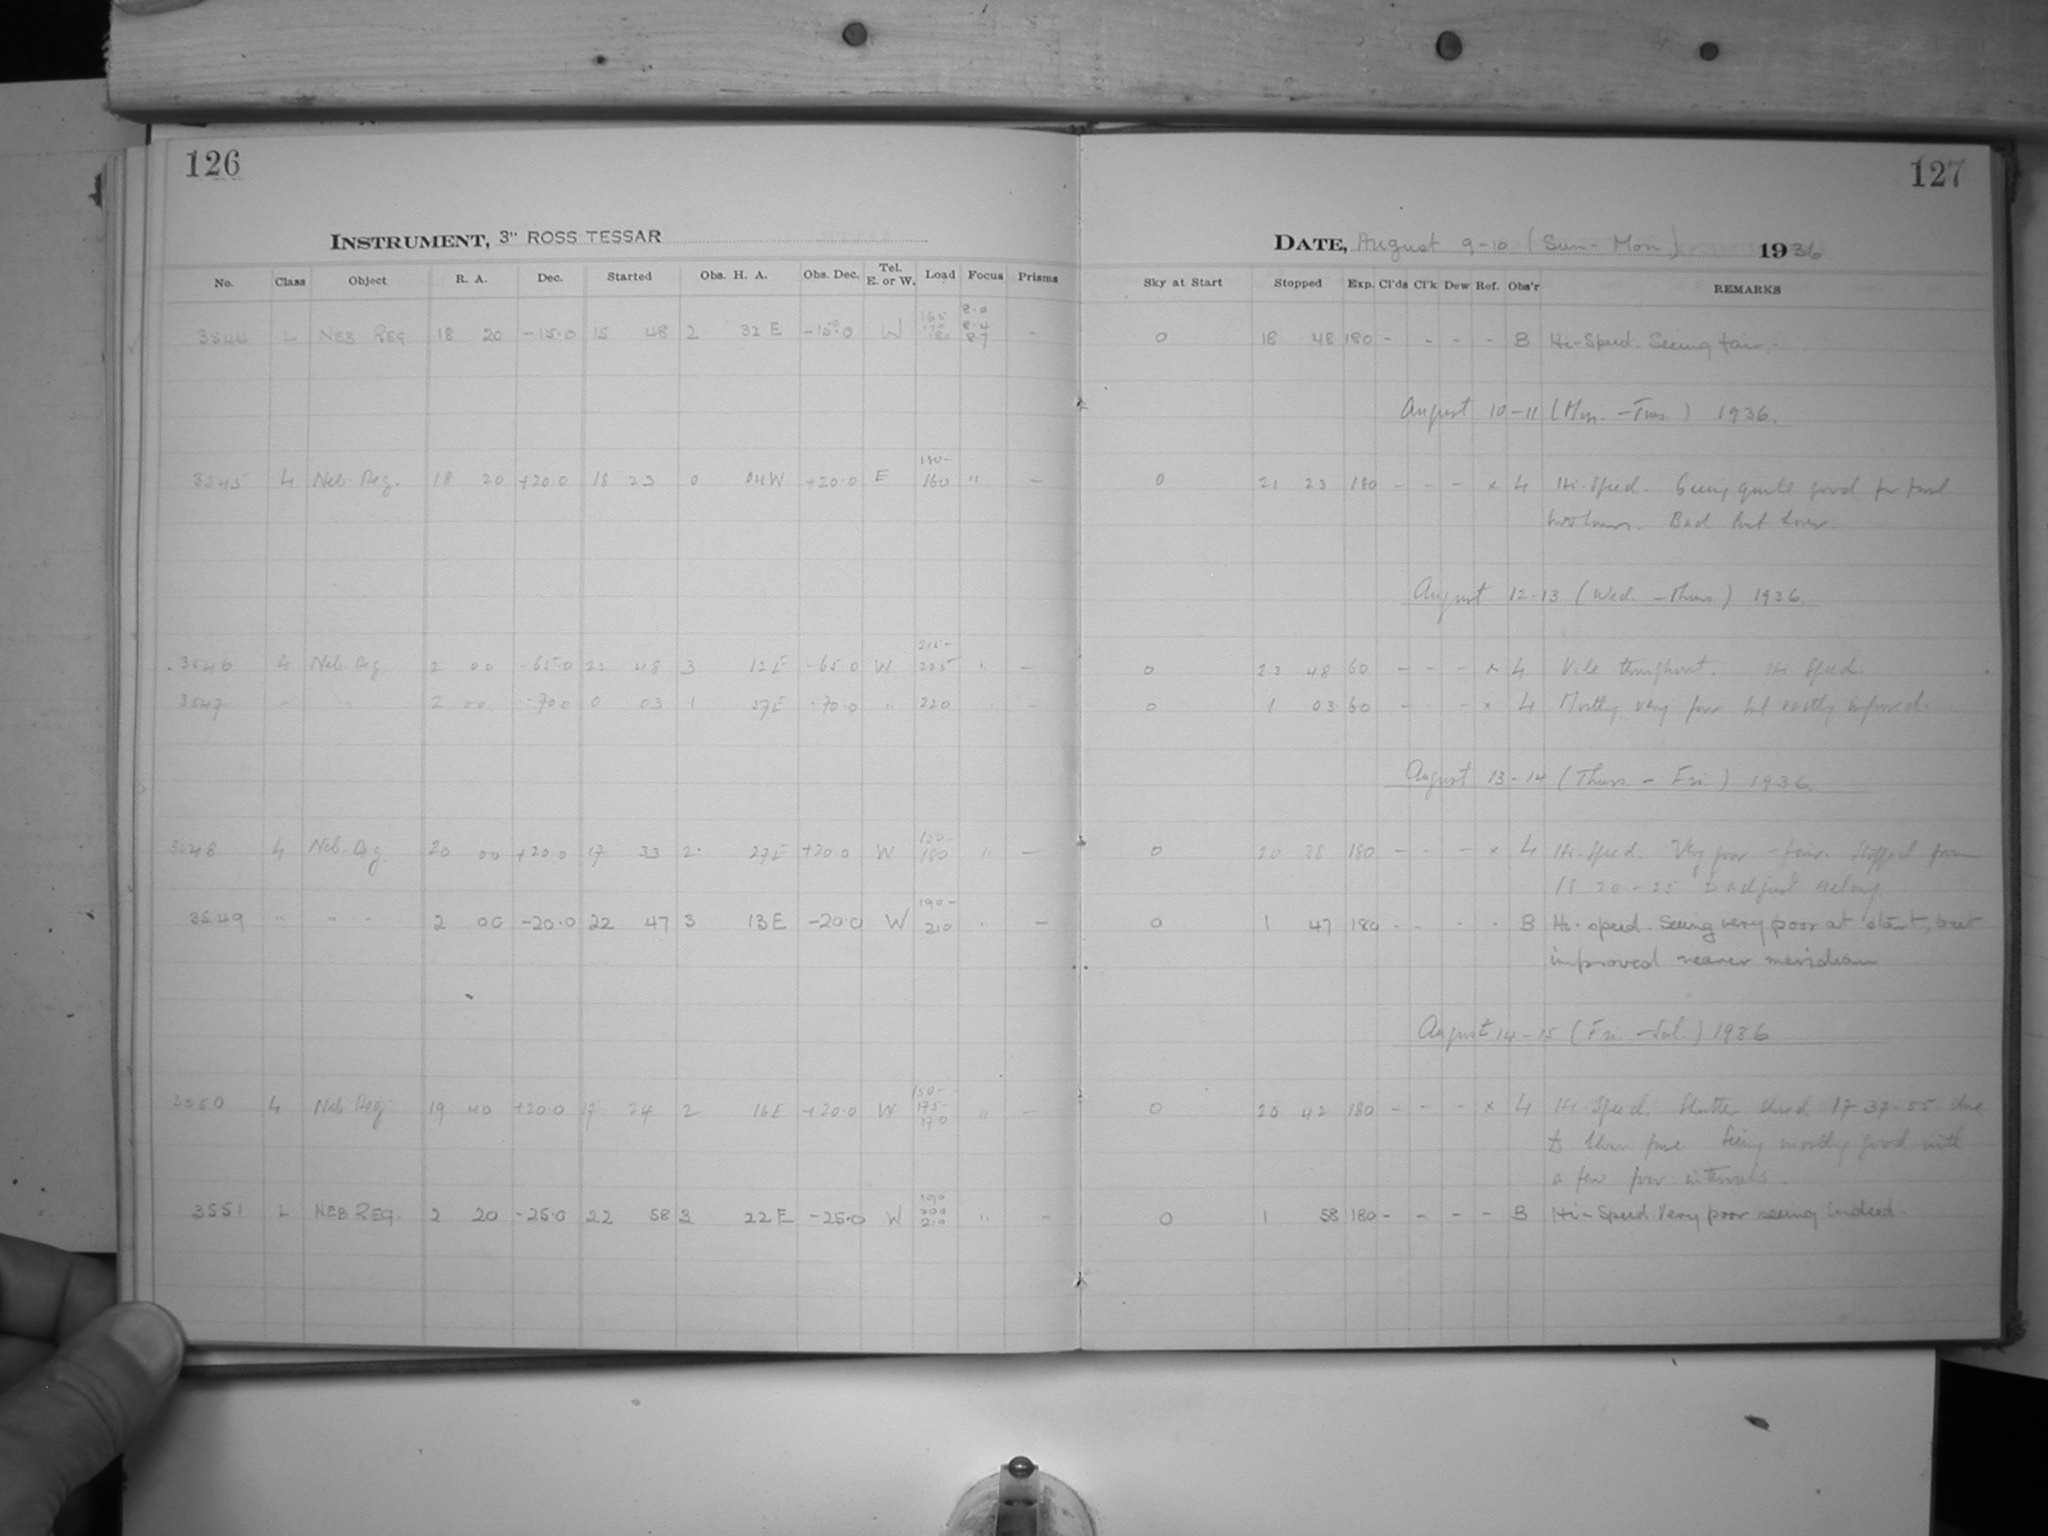 126
127
INSTRUMENT, 3" ROSS TESSAR
DATE, August 9-10 (Sun-Mon) 1936
No. Class Object R. A. Dec. Started Obs. H. A. Obs. Dec. Tel. E. or W. Load Focus Prisms Sky at Start Stopped Exp. Cl'ds Cl'k Dew Ref. Obs'r REMARKS
3544 L NEB REG 18 20 -15.0 15 48 2 32 E -15.0 W 165 170 180 8.0 8.4 8.7 - 0 18 48 180 - - - - B Hi-Speed. Seeing fair.
August 10-11 (Mon. -Tues.) 1936.
3545 L Neb. Reg. 18 20 +20.0 18 23 0 04 W +20.0 E 160 " - 0 21 23 180 - - - x L Hi-Speed. Seeing quite good for first
two hours. Bad last hour
August 12-13 (Wed. -Thurs.) 1936.
3546 L Neb Reg 2 00 -65.0 22 48 3 12 E -65.0 W 215- 225 " - 0 23 48 60 - - - x L Vile throughout. Hi Speed.
3547 " " 2 00 -70.0 0 03 1 57 E -70.0 " 220 " - 0 1 03 60 - - x L Mostly very poor but vastly improved.
August 13-14 (Thurs - Fri) 1936.
3548 L Neb. Reg. 20 00 +20.0 17 33 2 27 E +20.0 W 180 " - 0 20 38 180 - - - x L Hi-Speed. Very poor - fair. Stopped from
18 20-25 to adjust relay
3549 " " - 2 00 -20.0 22 47 3 13 E -20.0 W 190- 210 " - 0 1 47 180 - - - - B Hi-speed. Seeing very poor at start, but
improved nearer meridian
August 14-15 (Fri. -Sat.) 1936
3550 L Neb Reg. 19 40 +20.0 17 24 2 16 E +20.0 W 150- 175- 170 " - 0 20 42 180 - - - x L Hi-Speed. Shutter closed 17-37-55 due
to blown fuse Seeing mostly good with
a few poor intervals.
3551 L NEB REG. 2 20 -25.0 22 58 3 22 E -25.0 W 200 210 " - 0 1 58 180 - - - - B Hi-Speed Very poor seeing indeed.